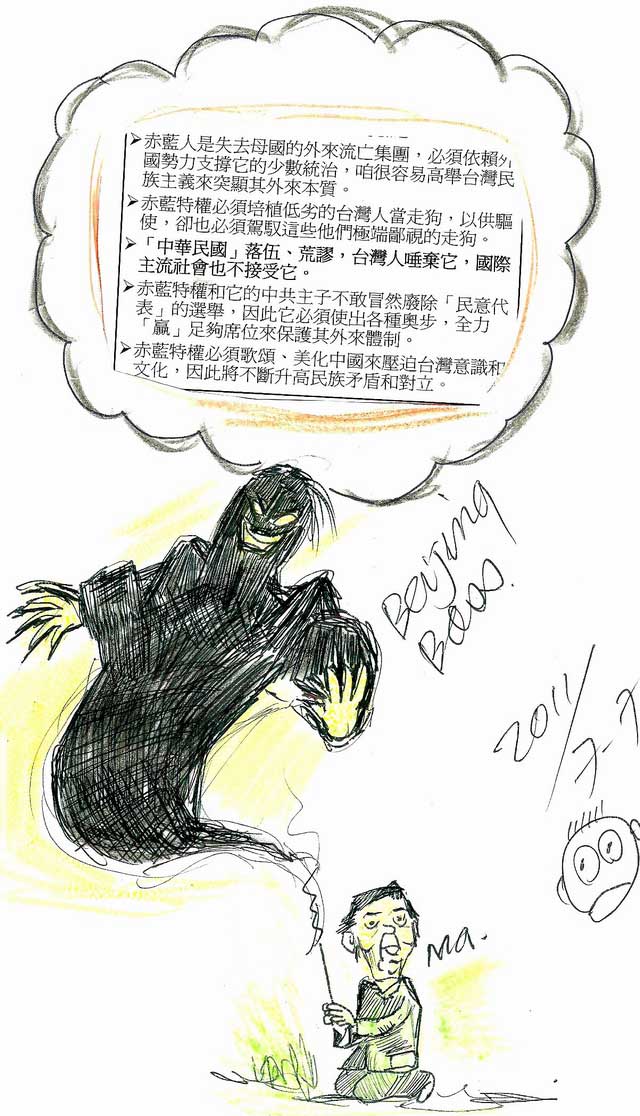 ➢赤藍人是失去母國的外來流亡集團，必須依賴外
國勢力支撐它的少數統治，咱很容易高舉台灣民
族主義來突顯其外來本質。
➢赤藍特權必須培植低劣的台灣人當走狗，以供驅
使，卻也必須駕馭這些他們極端鄙視的走狗。
➢「中華民國」落伍、荒謬，台灣人唾棄它，國際
主流社會也不接受它。
➢赤藍特權和它的中共主子不敢冒然廢除「民意代
表」的選舉，因此它必須使出各種奧步，全力
「贏」足夠席位來保護其外來體制。
➢赤藍特權必須歌頌、美化中國來壓迫台灣意識和
文化，因此將不斷升高民族矛盾和對立。
Beijing
Boss.
2011/7-7
Ma.